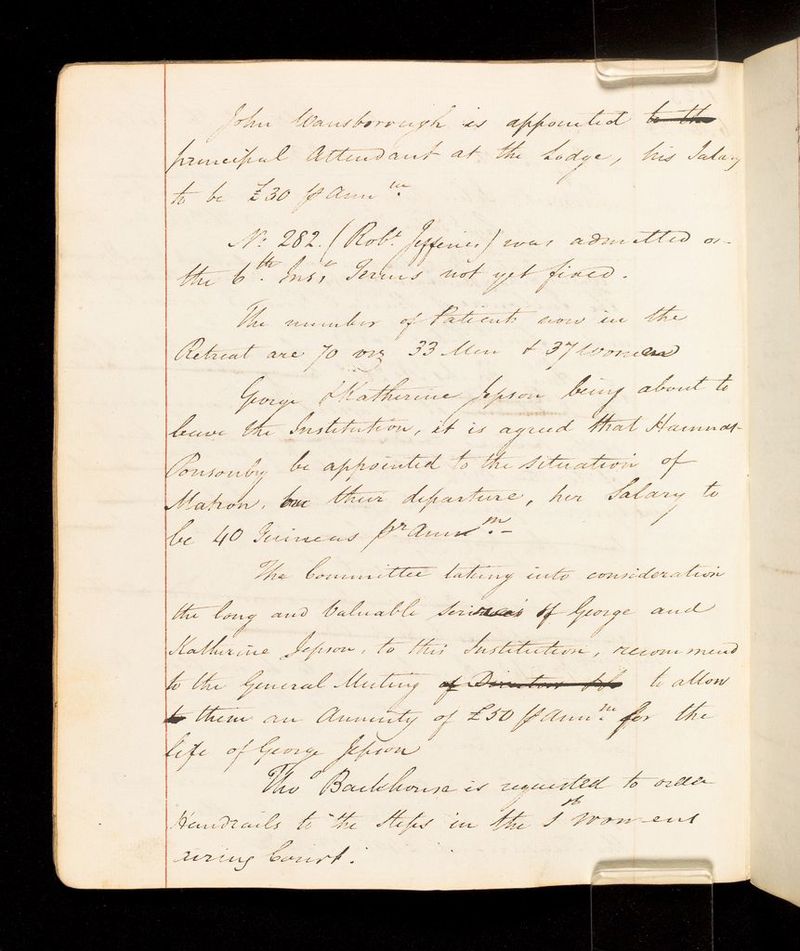 John Wansborough is appointed to the
principal Attendant at the Lodge, his Salary
to be £30 ⅌ Annm.
No. 282. (Robt. Jefferies) was admitted on
the 6th. Inst, Terms not yet fixed.
The number of Patients now in the
Retreat are 70 viz 33 Men & 37 Women
George & Katherine Jepson being about to
leave the Institution, it is agreed that Hannah
Ponsonby be appointed to the situation of
Matron, on their departure, her Salary to
be 40 Guineas pr Annm.
The Committee taking into consideration
the long and valuable services of George and
Katherine Jepson, to this Institution, recommend
to the General Meeting of Directors to allow
to them an Annuity of £50 ⅌ Annm. for the
life of George Jepson
Tho Backhouse is requested to order
Handrails to the Steps in the Womens
airing Court.